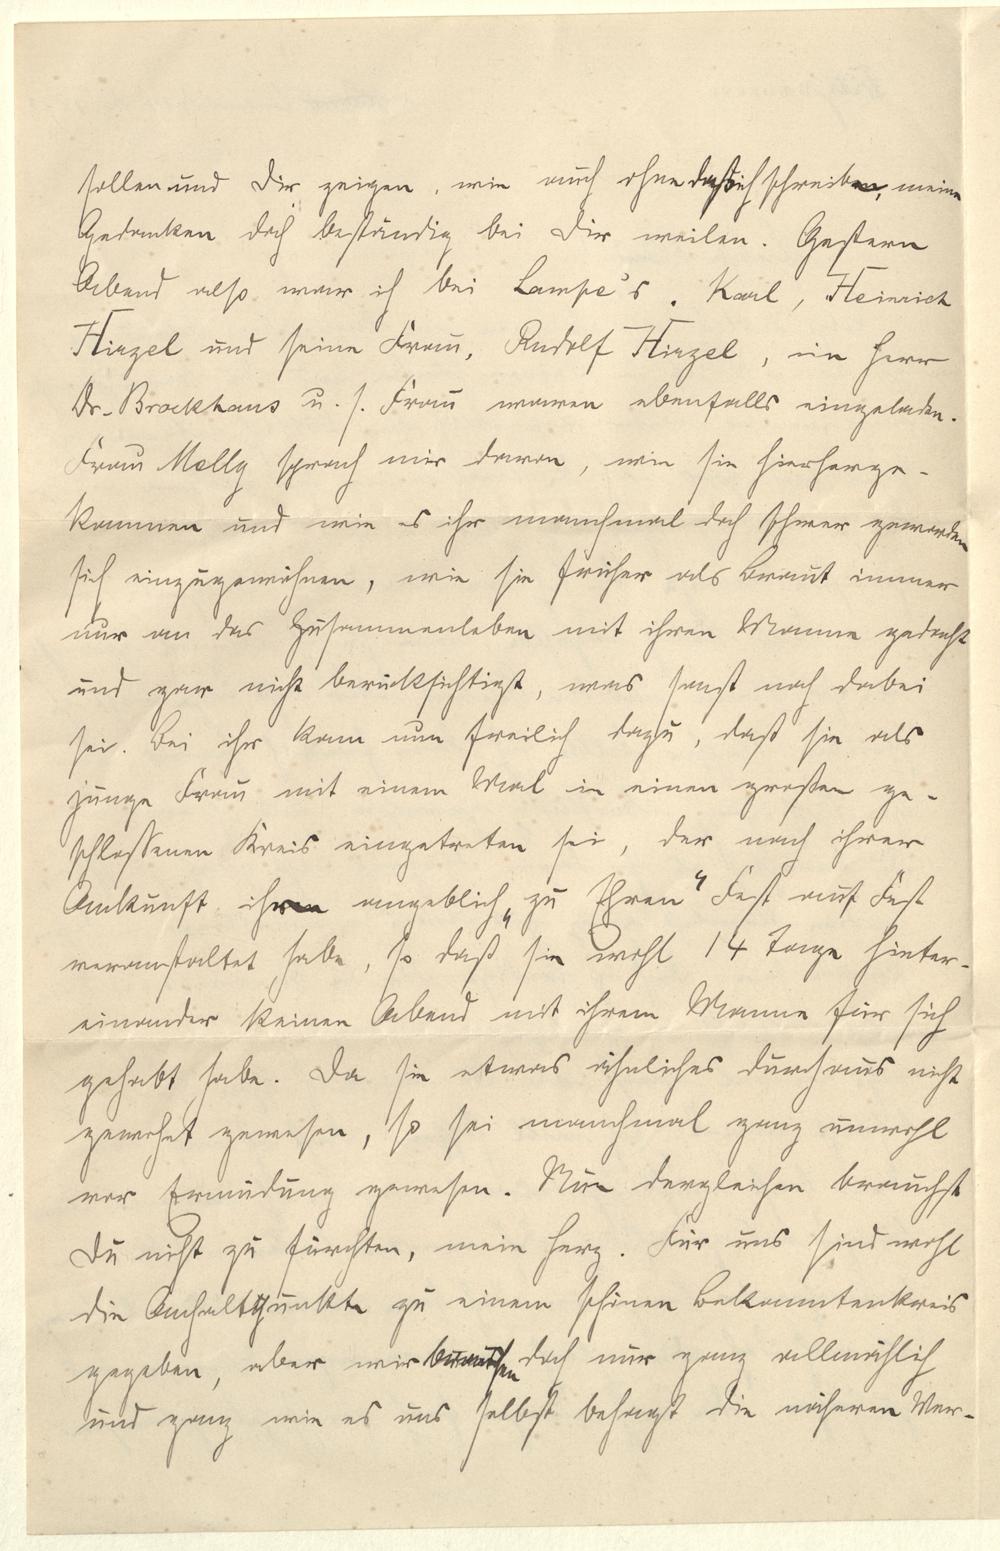 sollen und Dir zeigen, wie auch ohne daß ich schreibe, meine
Gedanken doch beständig bei Dir weilen. Gestern
Abend also war ich bei Lampe's. Karl, Heinrich
Hirzel und seine Frau, Rudolf Hirzel, ein Herr
Dr. Brockhaus u. s. Frau waren ebenfalls eingeladen.
Frau Melly sprach mir davon, wie sie hierherge-
kommen und wie es ihr manchmal doch schwer geworden
sich einzugewöhnen, wie sie früher als Braut immer
nur an das Zusammenleben mit ihren Manne gedacht
und gar nicht berücksichtigt, was sonst noch dabei
sei. Bei ihr kam nun freilich dazu, daß sie als
junge Frau mit einem Mal in einen großen ge-
schlossenen Kreis eingetreten sei, der nach ihrer
Ankunft ihr angeblich „zu Ehren“ Fest auf Fest
veranstaltet habe, so daß sie wohl 14 Tage hinter-
einander keinen Abend mit ihrem Manne für sich
gehabt habe. Da sie etwas ähnliches durchaus nicht
gewohnt gewesen, so sei manchmal ganz unwohl
vor Ermüdung gewesen. Nun dergleichen brauchst
Du nicht zu fürchten, mein Herz. Für uns sind wohl
die Anhaltspunkte zu einem schönen Bekanntenkreis
gegeben, aber wir brauchen doch nur ganz allmählich
und ganz wie es uns selbst behagt die näheren Ver-